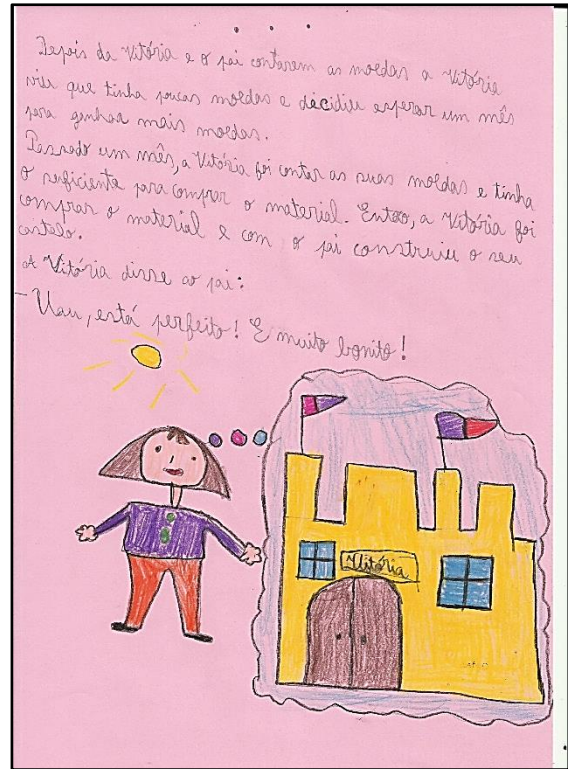 Depois da Vitória e o pai contarem as moedas a Vitória
viu que tinha poucas moedas e decidiu esperar um mês
para ganhar mais moedas.
Passado um mês, a Vitória foi contar as suas moedas e tinha
o suficiente para comprar o material. Então, a Vitória foi
comprar o material e com o pai construiu o seu
castelo.
A Vitória disse ao pai:
- Uau, está perfeito! É muito bonito!
Vitória